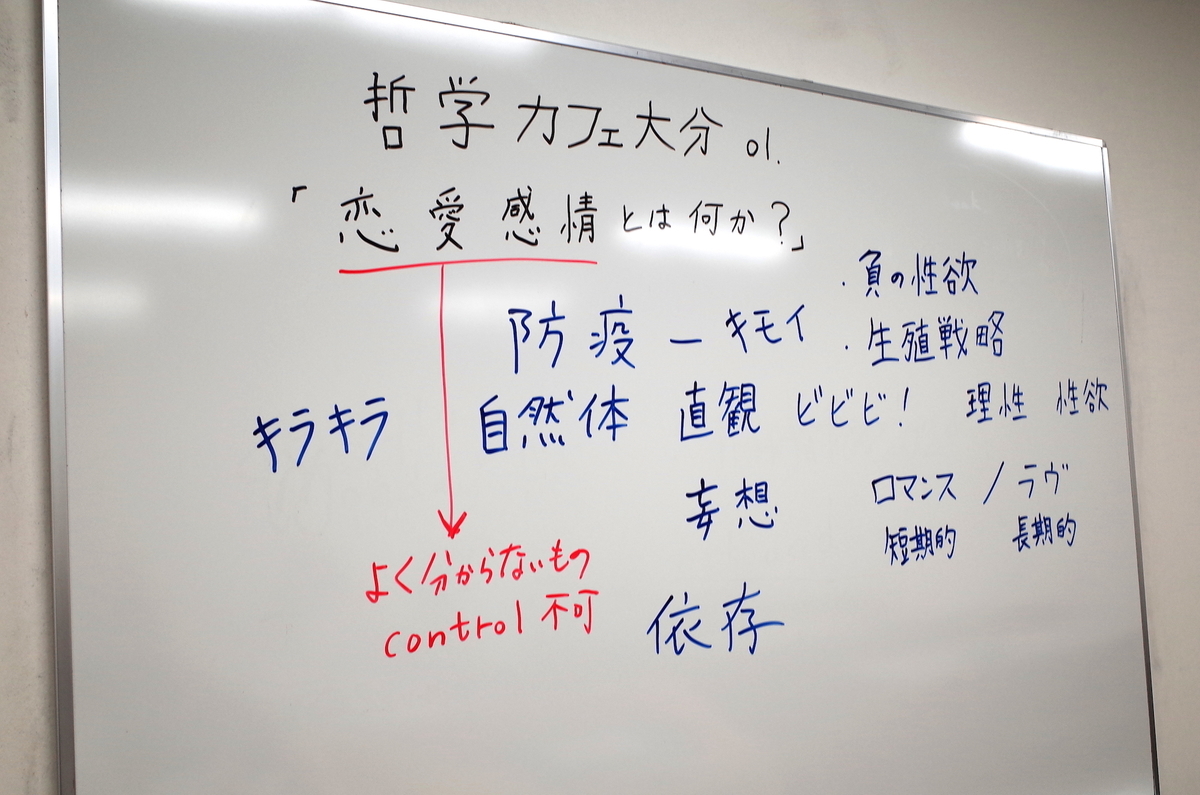 哲学カフェ大分 01.
「恋愛感情とは何か?」
・負の性欲
防疫ーキモイ ・生殖戦略
キラキラ 自然体 直観 ビビビ! 理性 性欲
妄想 ロマンス / ラヴ
短期的 長期的
よく分からないもの
control 不可
依存